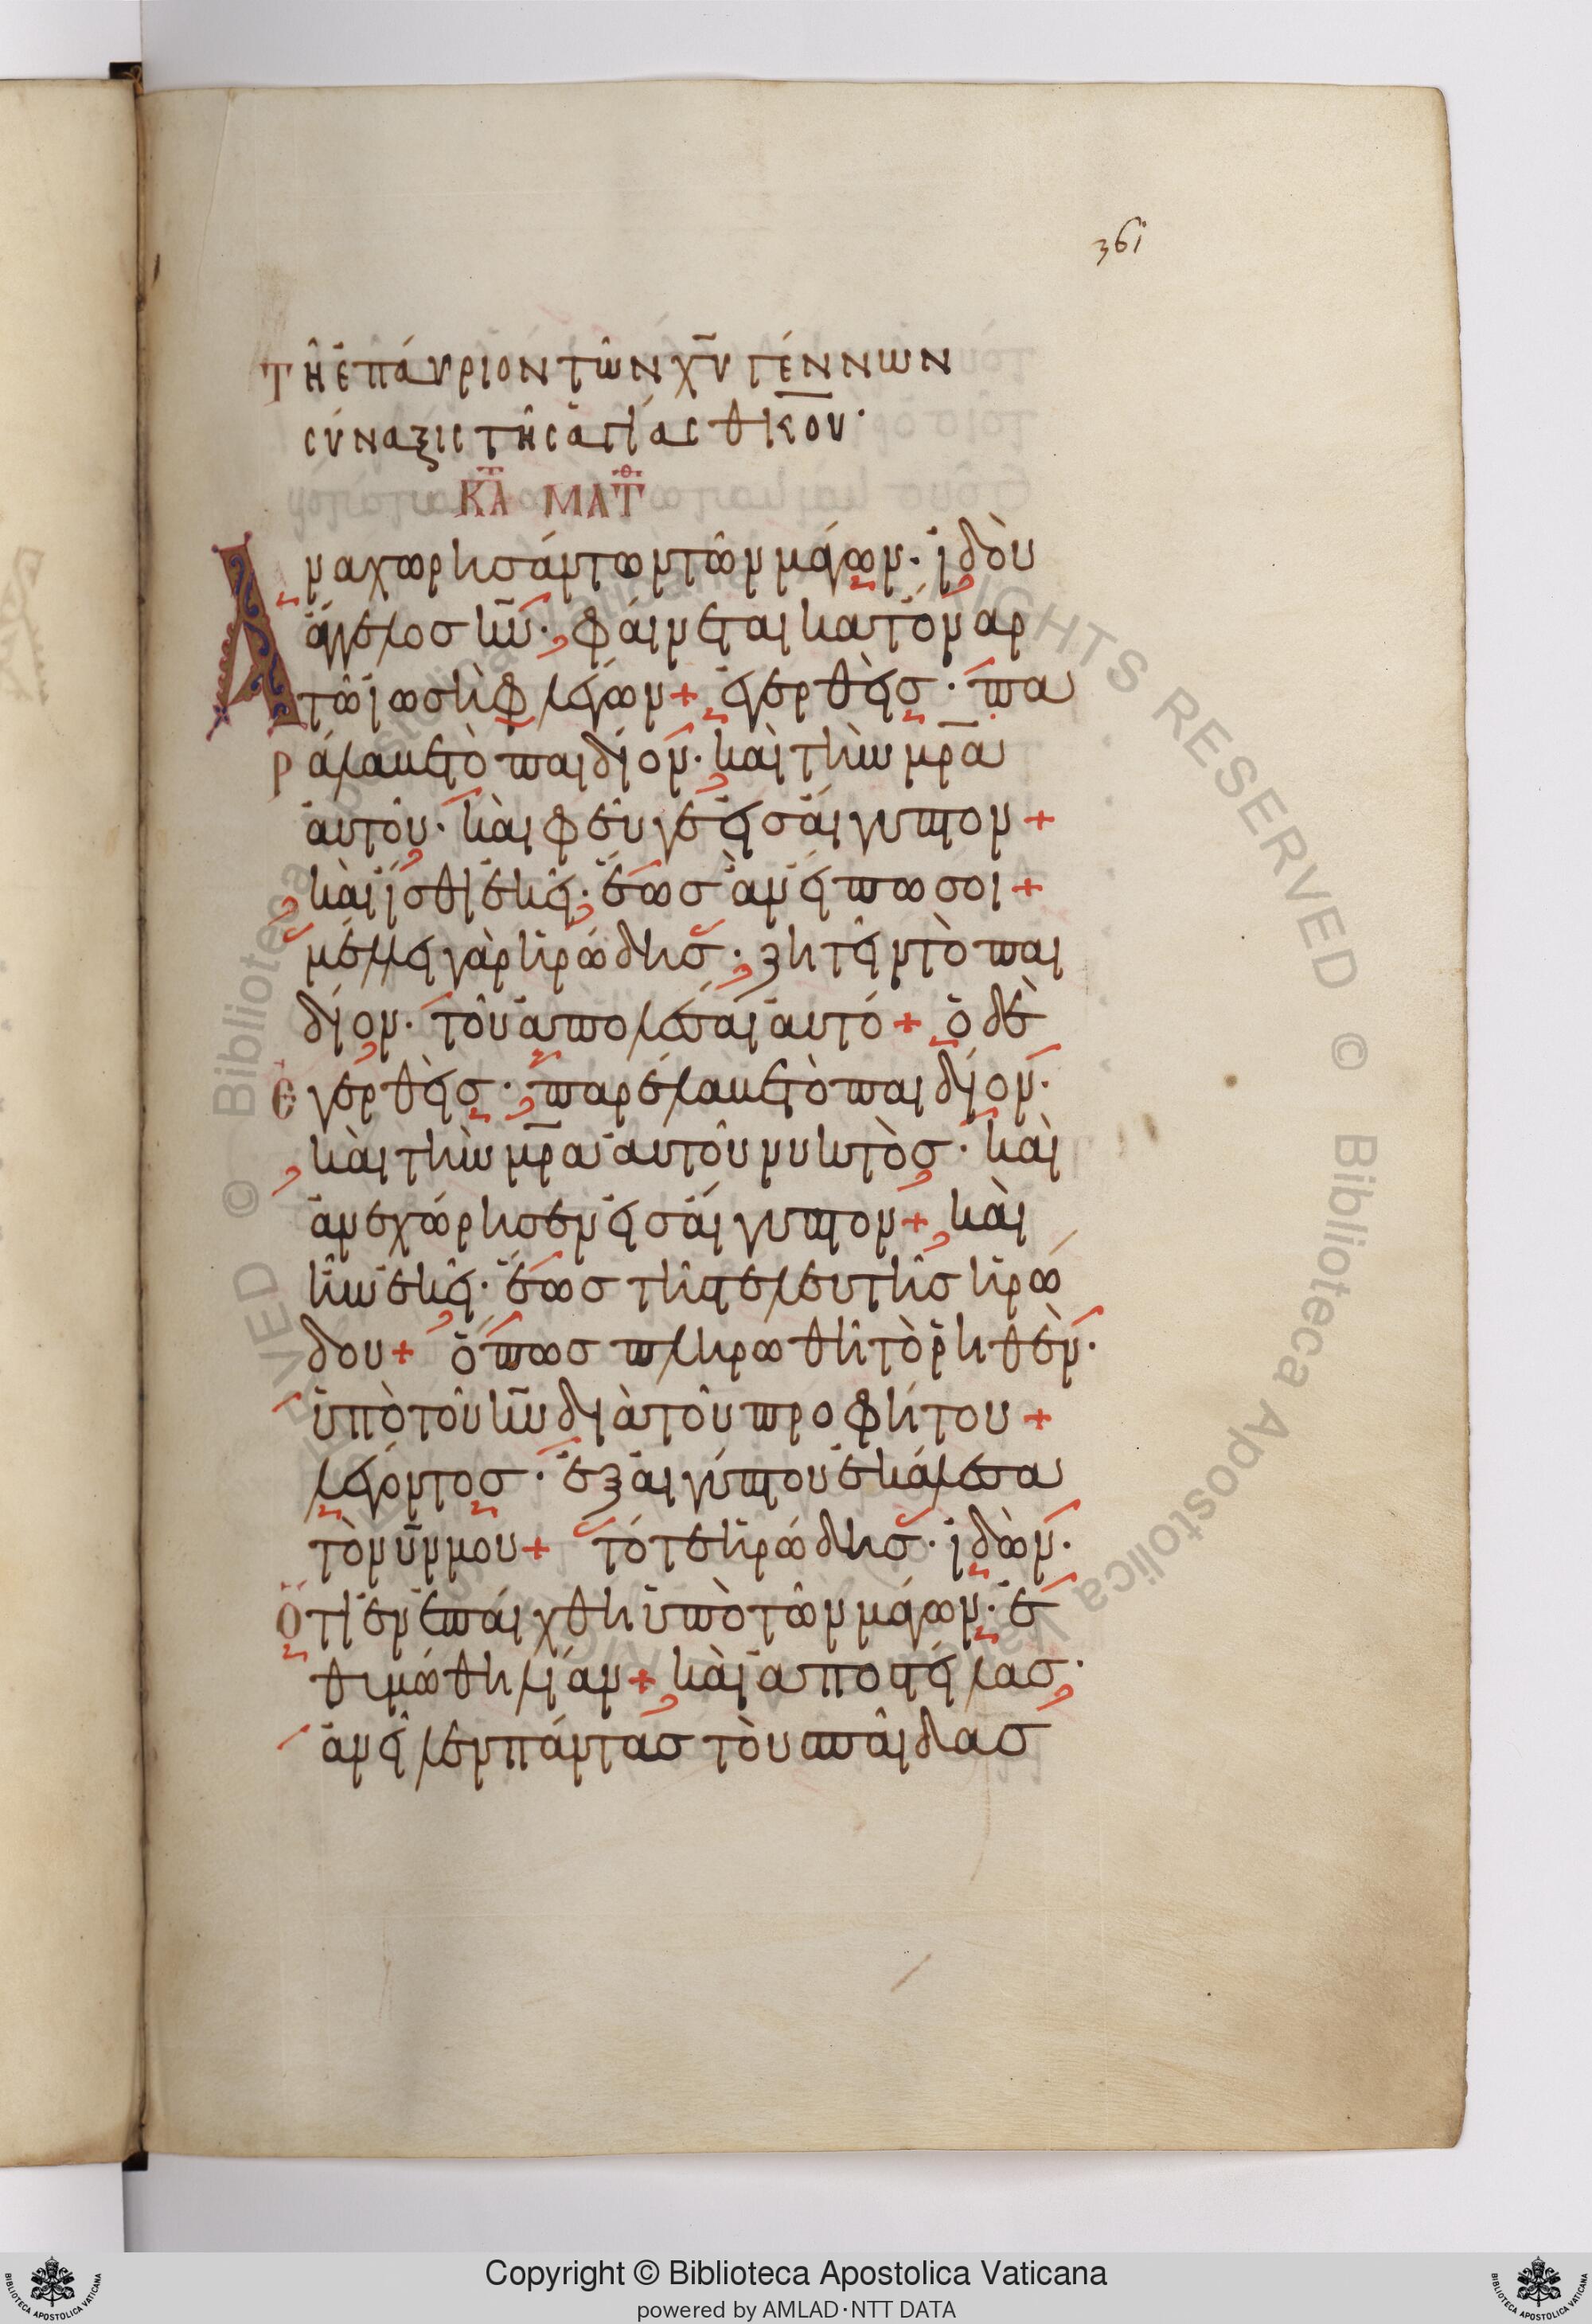 361
Τῆ ἐπάυριον τῶν χ̅υ̅ γέννων
σύναξις τῆς ἁγίας θ̅κ̅ου·
Κ̅Α̅ ΜΑΤ̅Θ̅
Ἀναχωρησάντων τῶν μάγων· ἰδοὺ
ἄγγελος κ̅υ̅· φάινεται κατ ὄναρ
τῶ ἰωσὴφ λέγων + ἐγερθεὶς· πα
ράλαβε τὸ παιδίον· κὰι τὴν μ̅ρ̅α̅
ἀυτοῦ· κὰι φεῦγε ἐις ἄιγυπτον +
κὰι ἴσθι ἐκεῖ· ἕως ἂν ἔιπω σοι +
μέλλει γὰρ ἡρώδης· ζητεῖν τὸ παι
δίον· τοῦ ἀπολέσαι ἀυτό + ὁ δὲ
ἐγερθεὶς· παρέλαβε τὸ παιδίον·
κὰι τὴν μ̅ρ̅α̅ ἀυτοῦ νυκτὸς· κὰι
ἀνεχώρησεν ἐις ἄιγυπτον + κὰι
ἦν ἐκεῖ· ἕως τῆς τελευτῆς ἡρώ
δου + ὅπως πληρωθῆ τὸ ῥηθὲν·
ὑπὸ τοῦ κ̅υ̅ διὰ τοῦ προφήτου +
λέγοντος· ἐξ ἀιγύπτου ἐκάλεσα
τὸν υ̅ν̅ μου + τότε ἡρώδης· ἰδὼν·
ὅτι ἐνεπάιχθη ὑπὸ τῶν μάγων· ἐ
θυμώθη λίαν + κὰι ἀποστείλας·
ἀνεῖλεν πάντας τοὺς πᾶιδας
Copyright © Biblioteca Apostolica Vaticana
powered by AMLAD·NTT DATA